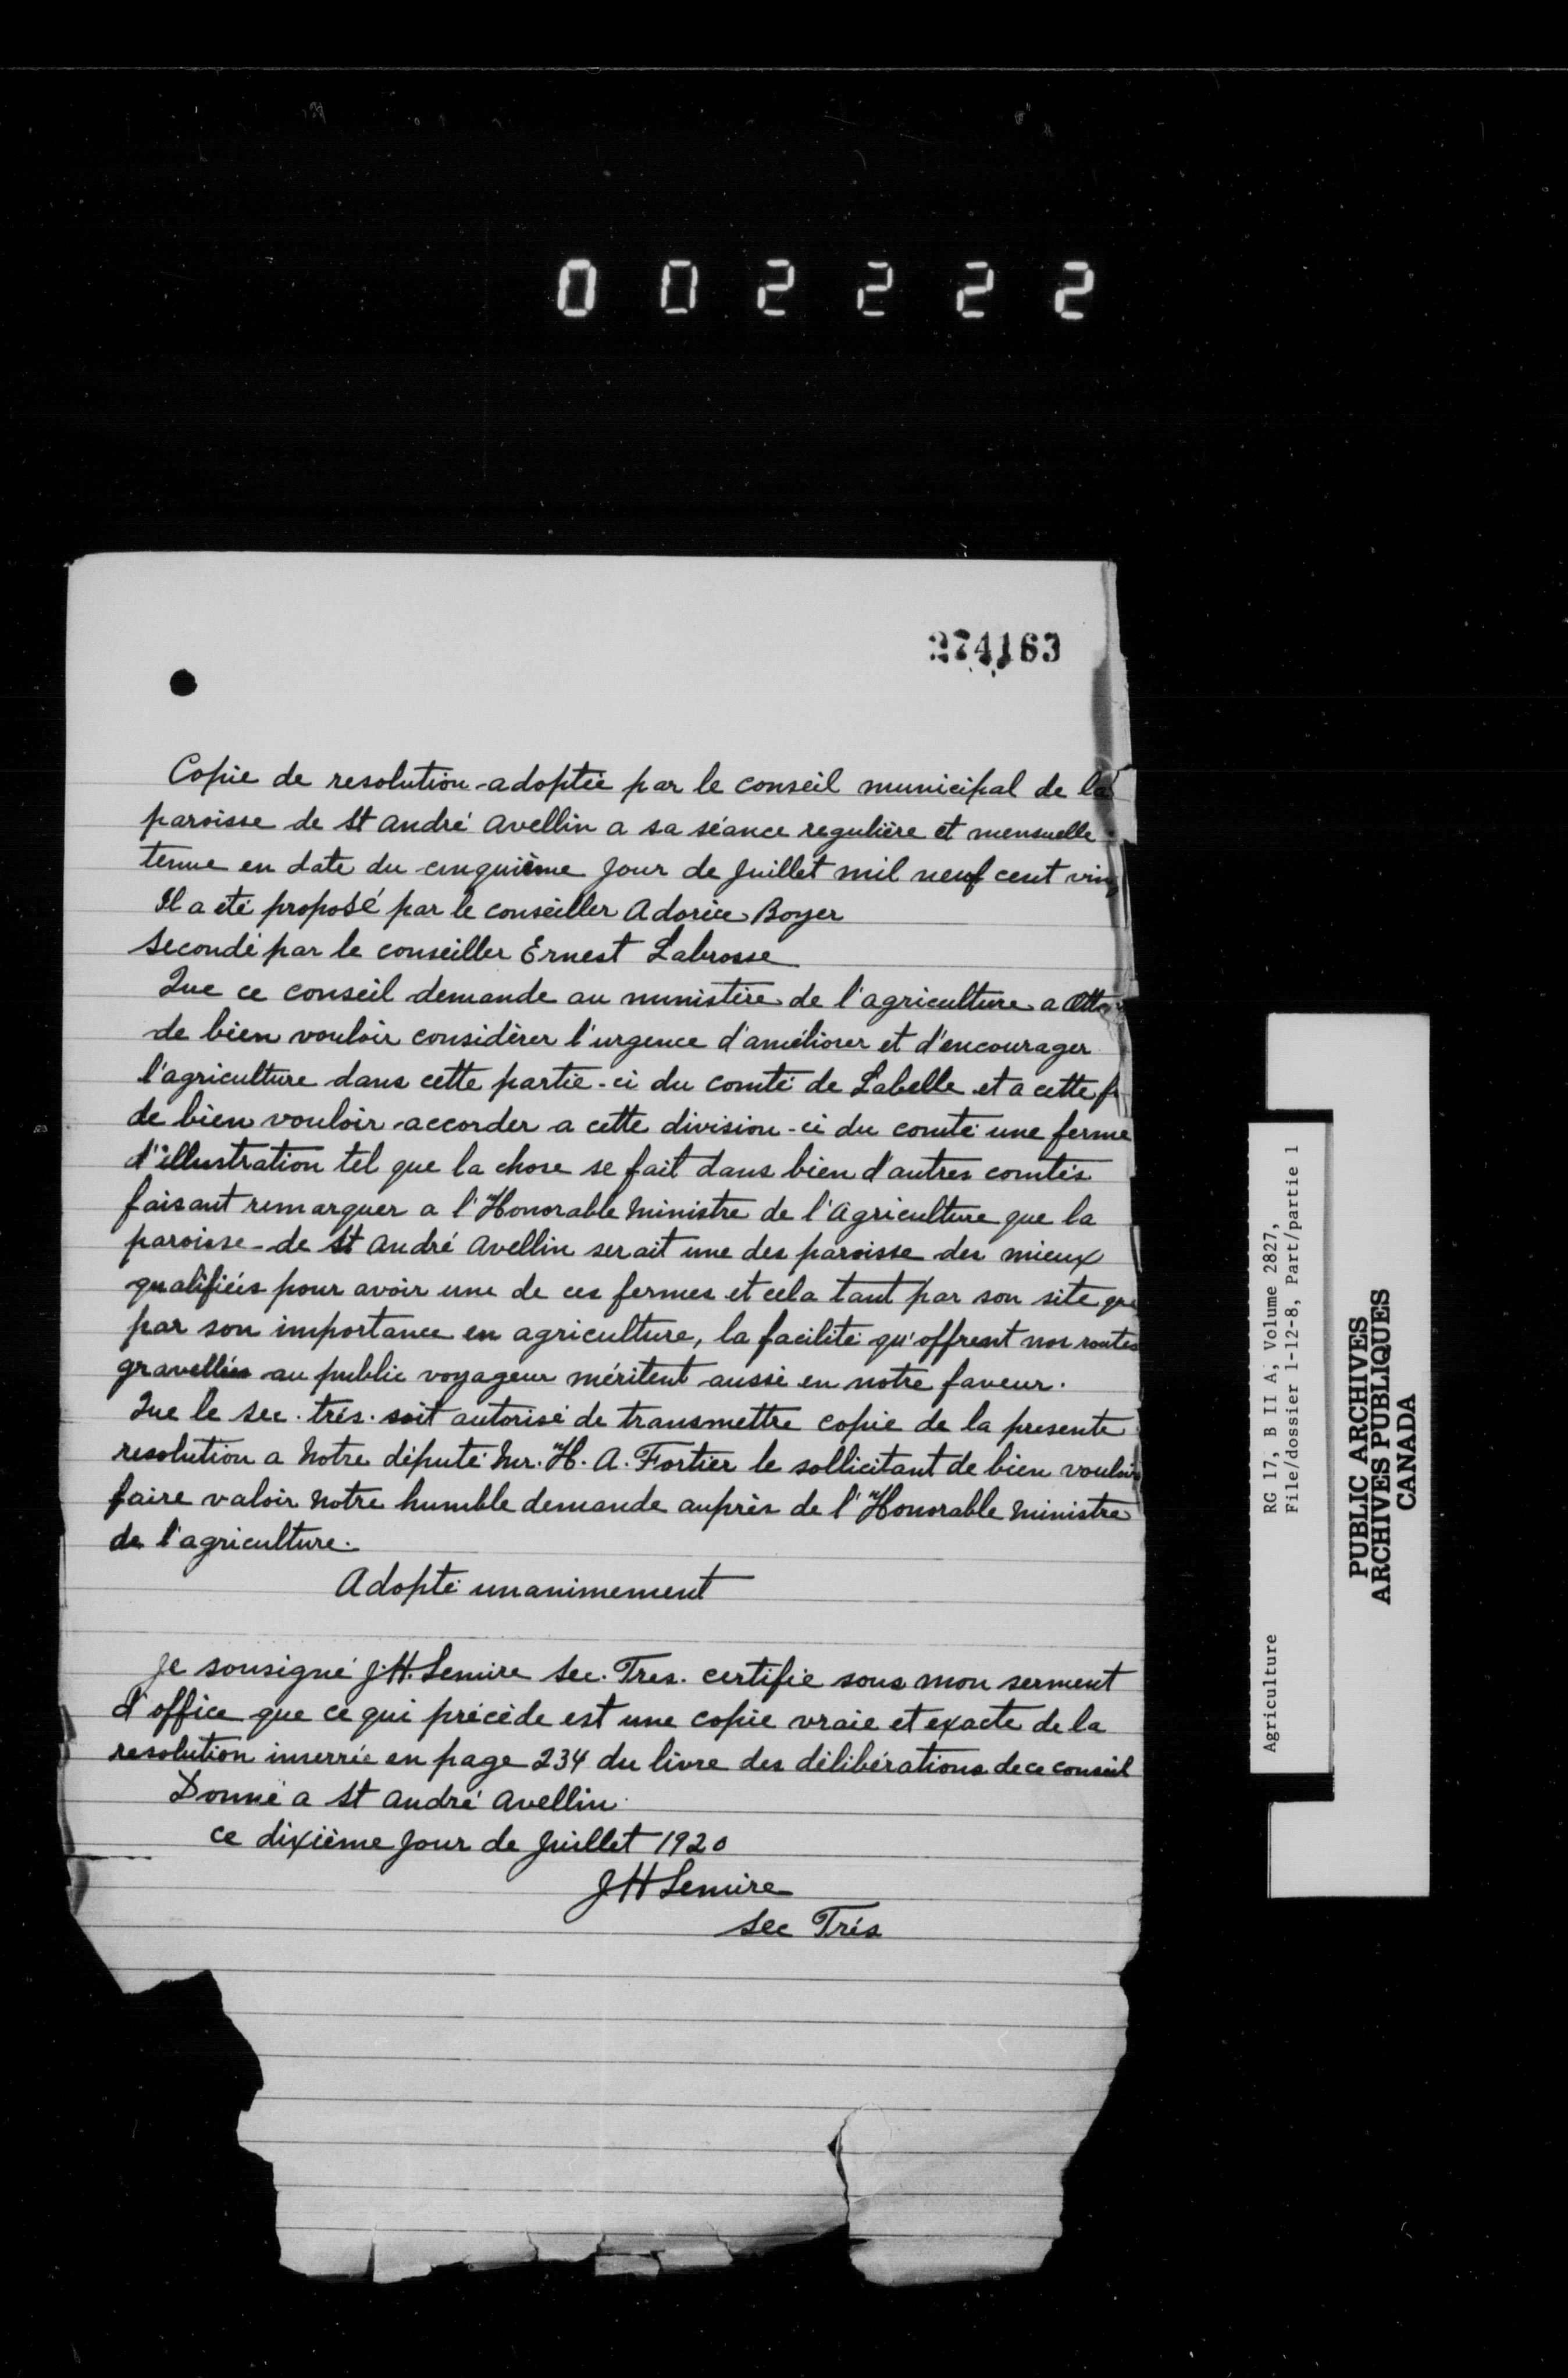 002222
274163
Copie de resolution adoptée par le conseil municipal de la
paroisse de St André Avellin a sa séance regulière et mensuelle
tenue en date du cinquième jour de Juillet mil neuf cent ving
Il a été proposé par le conseiller Adorice Boyer
Secondé par le conseiller Ernest Labrosse
Que ce conseil demande au ministère de l'agriculture a Otta
de bien vouloir considérer l'urgence d'améliorer et d'encourager
l'agriculture dans cette partie-ci du comté de Labelle et a cette f
de bien vouloir accorder a cette division-ci du comté une ferme
d'illustration tel que la chose se fait dans bien d'autres comtés
faisant remarquer a l'Honorable Ministre de l'Agriculture que la
paroisse de St André Avellin serait une des paroisse des mieux
qualifiées pour avoir une de ces fermes et cela tant par son site que
par son importance en agriculture, la facilité qu'offrent nos routes
gravellées au public voyageur méritent aussi en notre faveur.
Que le Sec. trés. soit autorisé de transmettre copie de la presente
resolution a Notre député Mr. H. A. Fortier le sollicitant de bien vouloir
faire valoir Notre humble demande auprès de l'Honorable Ministre
de l'agriculture.
Adopté unanimement
Je sousigné J.H. Lemire Sec. Tres. certifie sous mon serment
d'office que ce qui précède est une copie vraie et exacte de la
resolution inserrée en page 234 du livre des délibérations de ce conseil
Donné a St André Avellin
ce dixième Jour de Juillet 1920
J H Lemire
Sec Trés
Agriculture RG 17, B II A, Volume 2827,
File/dossier 1-12-8, Part/partie 1
PUBLIC ARCHIVES
ARCHIVES PUBLIQUES
CANADA